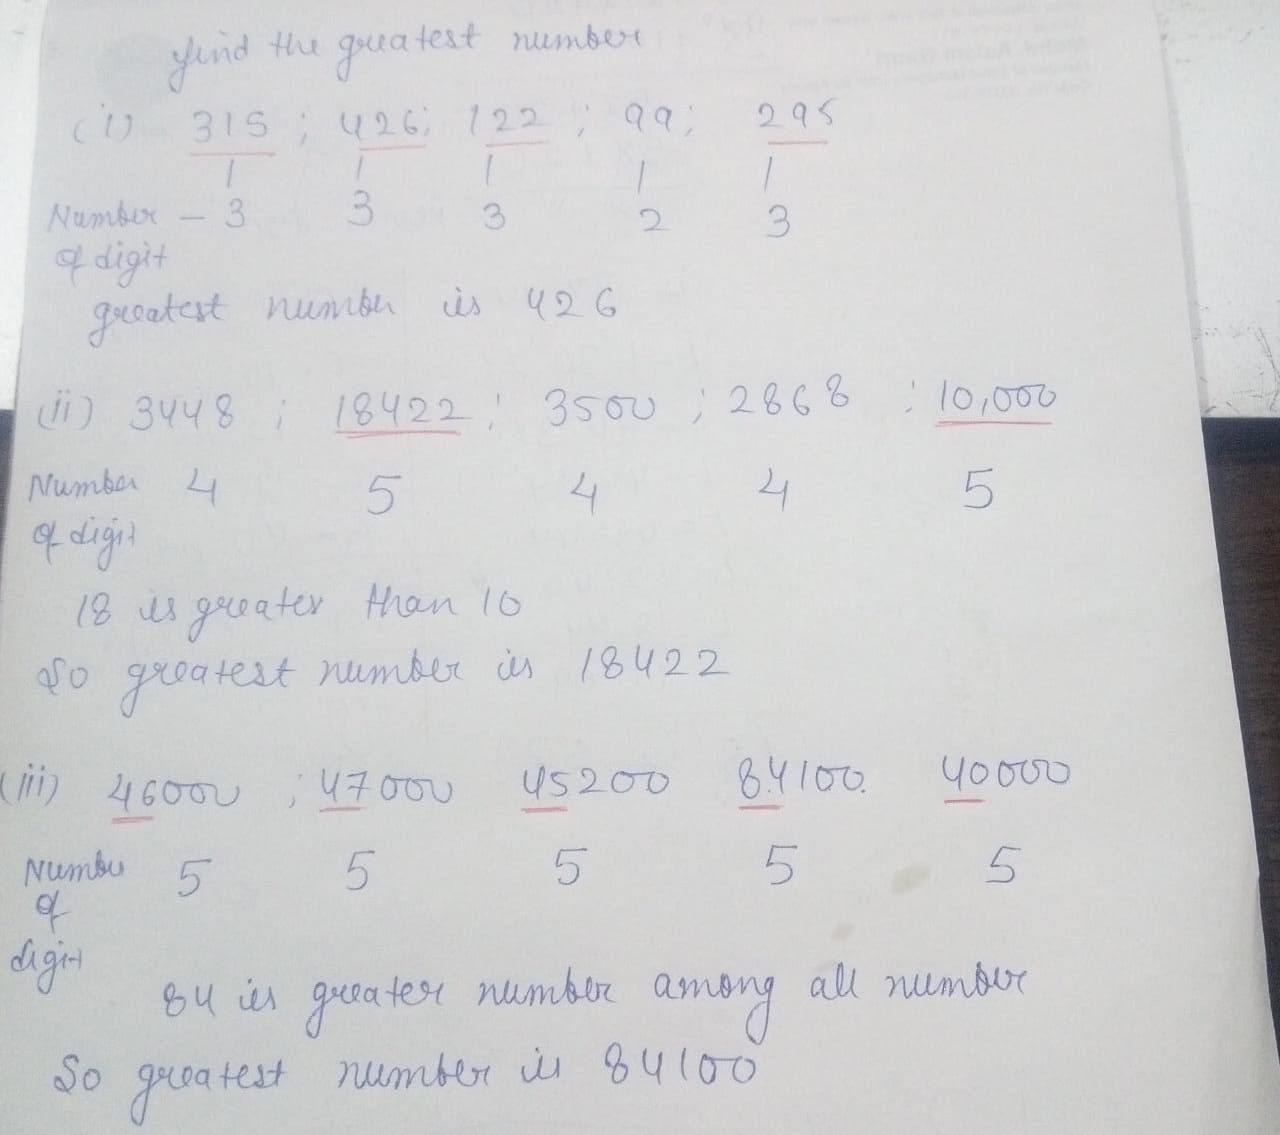 find the greatest number
(i) 315 ; 426; 122 ; 99; 295
Number – 3 3 3 2 3
of digit
greatest number is 426
(ii) 3448 ; 18422 ; 3500 ; 2868 ; 10,000
Number 4 5 4 4 5
of digit
18 is greater than 10
So greatest number is 18422
(iii) 46000 ; 47000 45200 84100. 40000
Number 5 5 5 5 5
of
digit
84 is greater number among all number
So greatest number is 84100